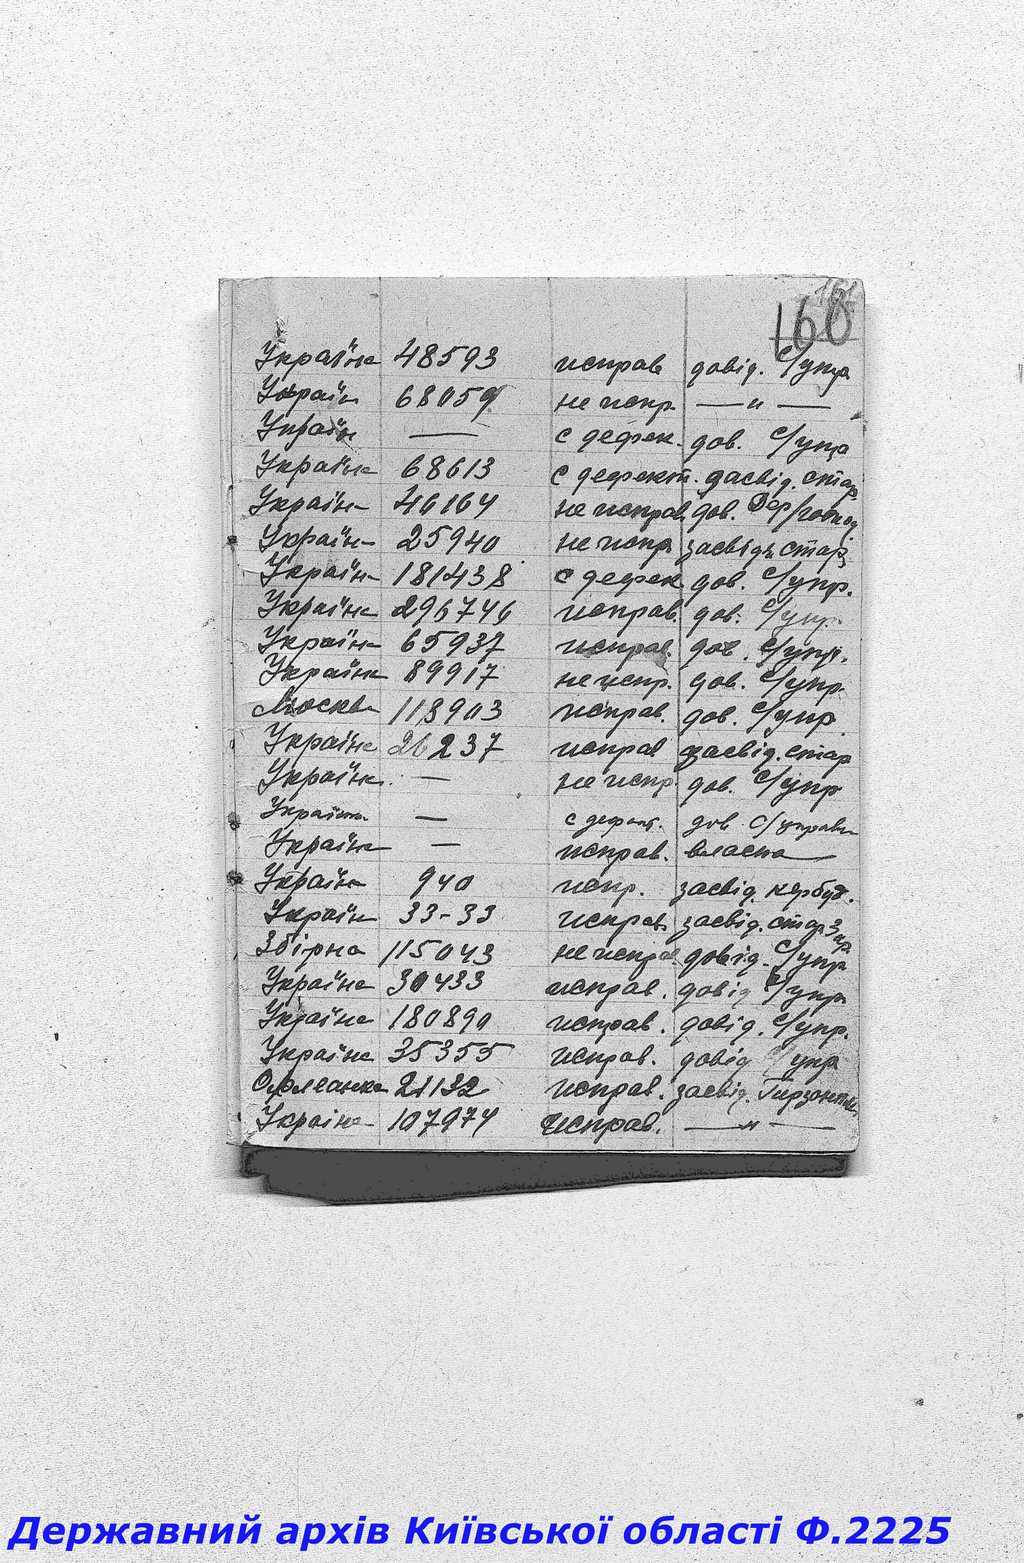 160
Україна 48593 исправ довід. С/упр.
Україн 68059 не испр. —„—
Україн — с дефек. дов. С/упр
Україна 68613 с дефект. засвід. стар.
Україна 46164 не исправ дов.
Україн 25940 не испр засвідч. стар.
Україн 181438 с дефек дов. С/упр.
Україна 296746 исправ. дов. С/упр.
Україна 65937 исправ. дов. С/упр.
Україна 89917 не испр. дов. С/упр.
Москва 118903 исправ. дов. С/упр.
Україна 26237 исправ засвід. стар
Україна — не испр. дов. С/упр
Україна — с дефект. дов С/управи
Україна — исправ. власна
Україна 940 испр. засвід.
Україн 33-33 исправ. засвід. стар.
Збірна 115043 не исправ довід. С/упр
Україна 30433 исправ. довід С/упр.
Україна 180890 исправ. довід. С/упр.
Україна 35355 исправ. довід С/упр
21132 исправ. засвід.
Україна 107974 исправ. —„—
Державний архів Київської області Ф.2225